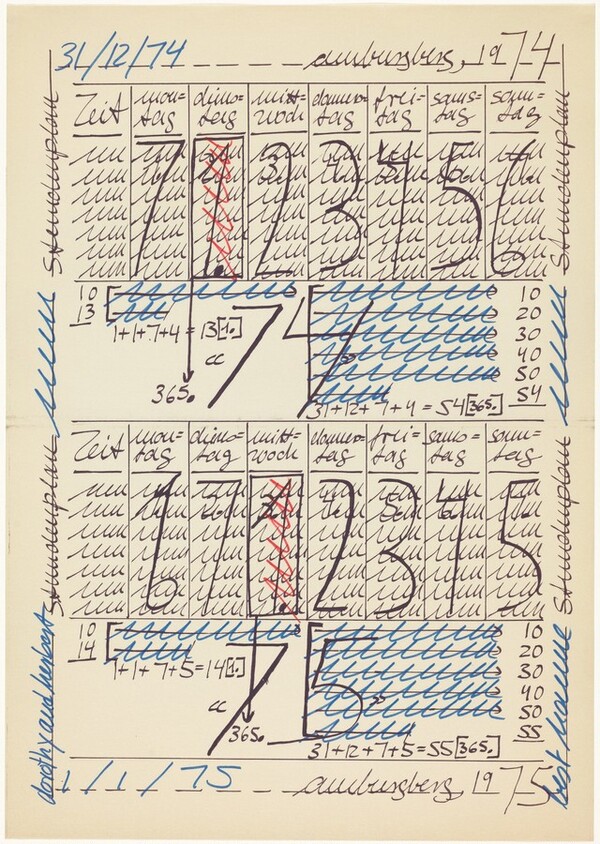 31/12/74 amburgberg, 1974
Stundenplan
Stundenplan
Zeit mon= diens= mitt= donners= frei= sams= sonn=
tag tag woch tag tag tag tag
7 1. 2 3 4 5 6
10 10
13 20
1+1+7+4=13[1.] 30
« 74 » 40
365. 50
54
31+12+7+4=54[365.]
Stundenplan
Stundenplan
Zeit mon= diens= mitt= donners= frei= sams= sonn=
tag tag woch tag tag tag tag
6 7 1. 2 3 4 5
10 10
14 20
1+1+7+5=14[1.] 30
« 75 » 40
365. 50
55
31+12+7+5=55[365.]
dorothy and herbert
1/1/75 amburgberg 1975
best hanne